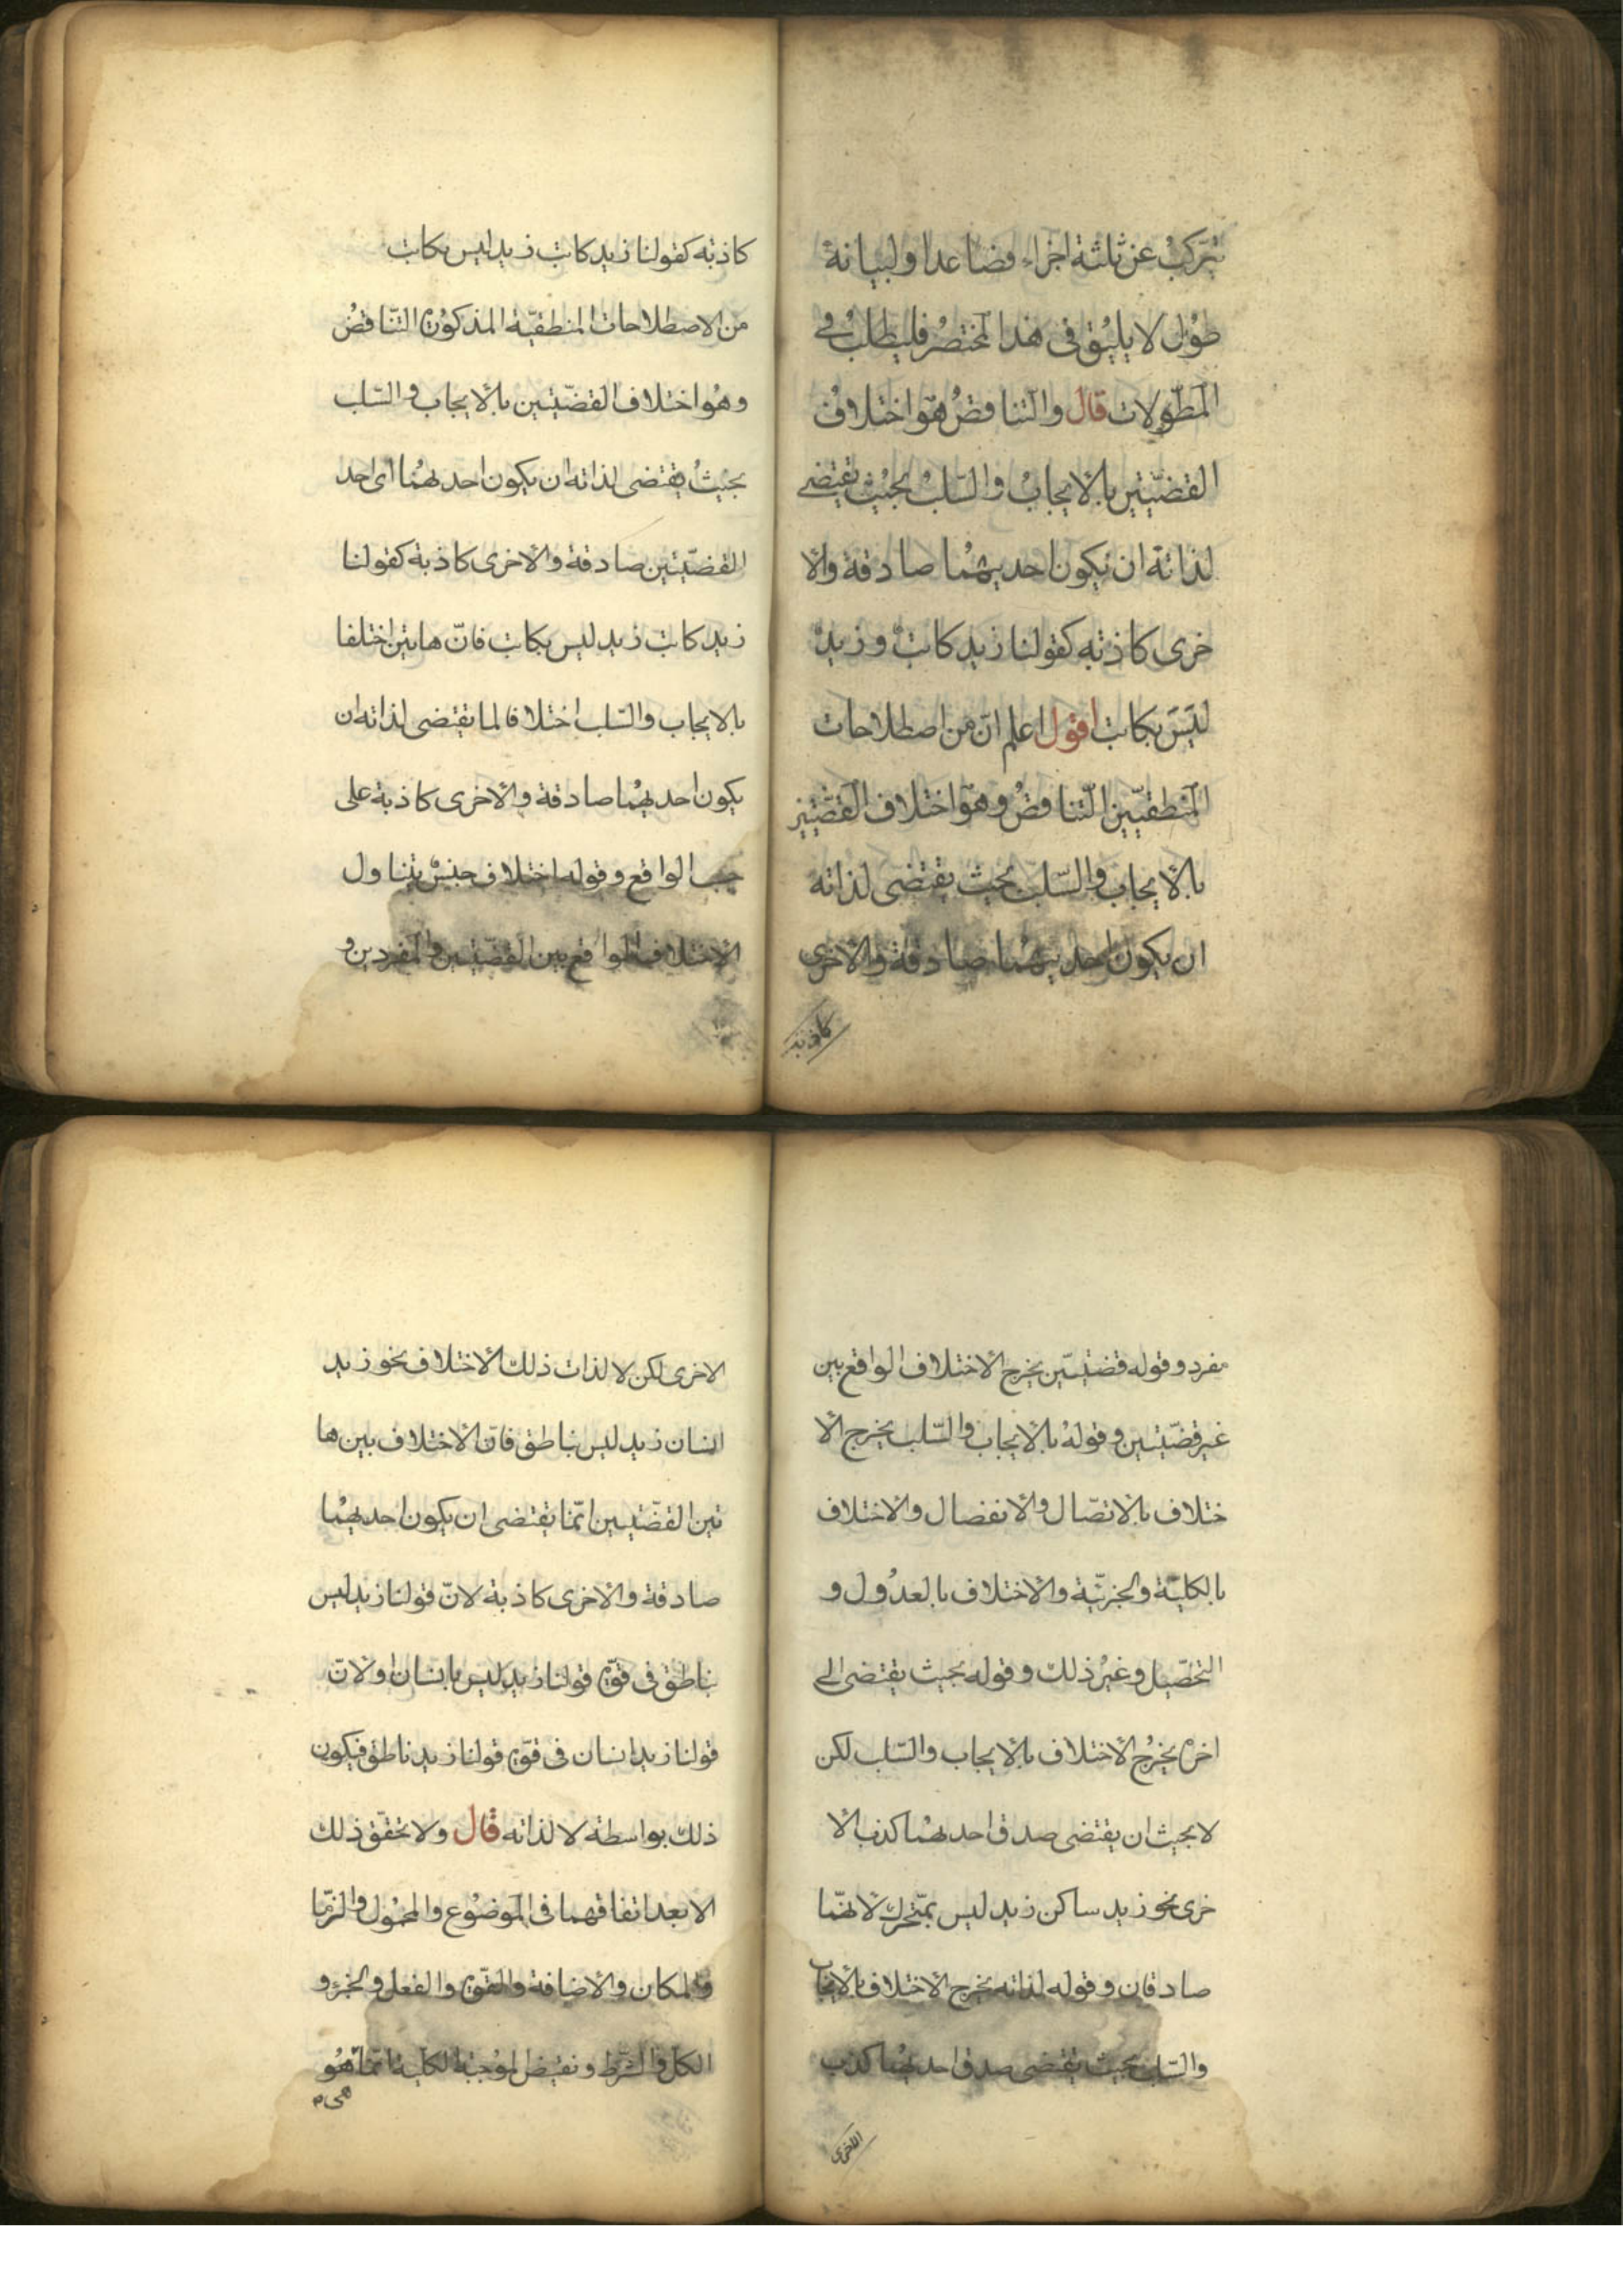 تتركب عن ثلثة اجزاء فصاعدا ولبيانه
طول لا يليق فى هذا المختصر فليطلب فى
المطولات قال والتناقض هو اختلاف
القضيتين بالايجاب والسلب بحيث يقتضى
لذاته ان يكون احديهما صادقة والا
خرى كاذبه كقولنا زيد كاتب وزيد
ليس بكاتب اقول اعلم ان من اصطلاحات
المنطقيين التناقض وهو اختلاف القضيتين
بالايجاب والسلب بحيث يقتضى لذاته
ان يكون احديهما صادقة والاخرى
كاذبه
كاذبه كقولنا زيد كاتب زيد ليس بكاتب
من الاصطلاحات المنطقية المذكورة التناقض
وهو اختلاف القضيتين بالايجاب والسلب
بحيث يقتضى لذاته ان يكون احدهما اى احد
القضيتين صادقة والاخرى كاذبة كقولنا
زيد كاتب زيد ليس بكاتب فان هاتين اختلفا
بالايجاب والسلب اختلافا لما يقتضى لذاته ان
يكون احديهما صادقة والاخرى كاذبة على
حسب الواقع وقوله اختلاف جنس يتناول
الاختلاف الواقع بين القضيتين والمفردين و
مفرد وقوله قضيتين يخرج الاختلاف الواقع بين
غير قضيتين وقوله بالايجاب والسلب يخرج الا
ختلاف بالاتصال والانفصال والاختلاف
بالكلية والجزئية والاختلاف بالعدول و
التحصيل وغير ذلك وقوله بحيث يقتضى الى
اخره يخرج الاختلاف بالايجاب والسلب لكن
لا بحيث ان يقتضى صدق احدهما كذب الا
خرى نحو زيد ساكن زيد ليس بمتحرك لانهما
صادقان وقوله لذاته يخرج الاختلاف بالايجاب
والسلب بحيث يقتضى صدق احديهما كذب
الاخرى
الاخرى لكن لا لذات ذلك الاختلاف نحو زيد
انسان زيد ليس بناطق فان الاختلاف بين ها
تين القضيتين انما يقتضى ان يكون احديهما
صادقة والاخرى كاذبة لان قولنا زيد ليس
بناطق فى قوة قولنا زيد ليس بانسان او لان
قولنا زيد انسان فى قوة قولنا زيد ناطق فيكون
ذلك بواسطة لا لذاته قال ولا تحقق ذلك
الا بعد اتفاقهما فى الموضوع والمحمول والزما
والمكان والاضافة والقوة والفعل والجزء و
الكل والشرط ونقيض الموجبة الكلية انما هو
هى م